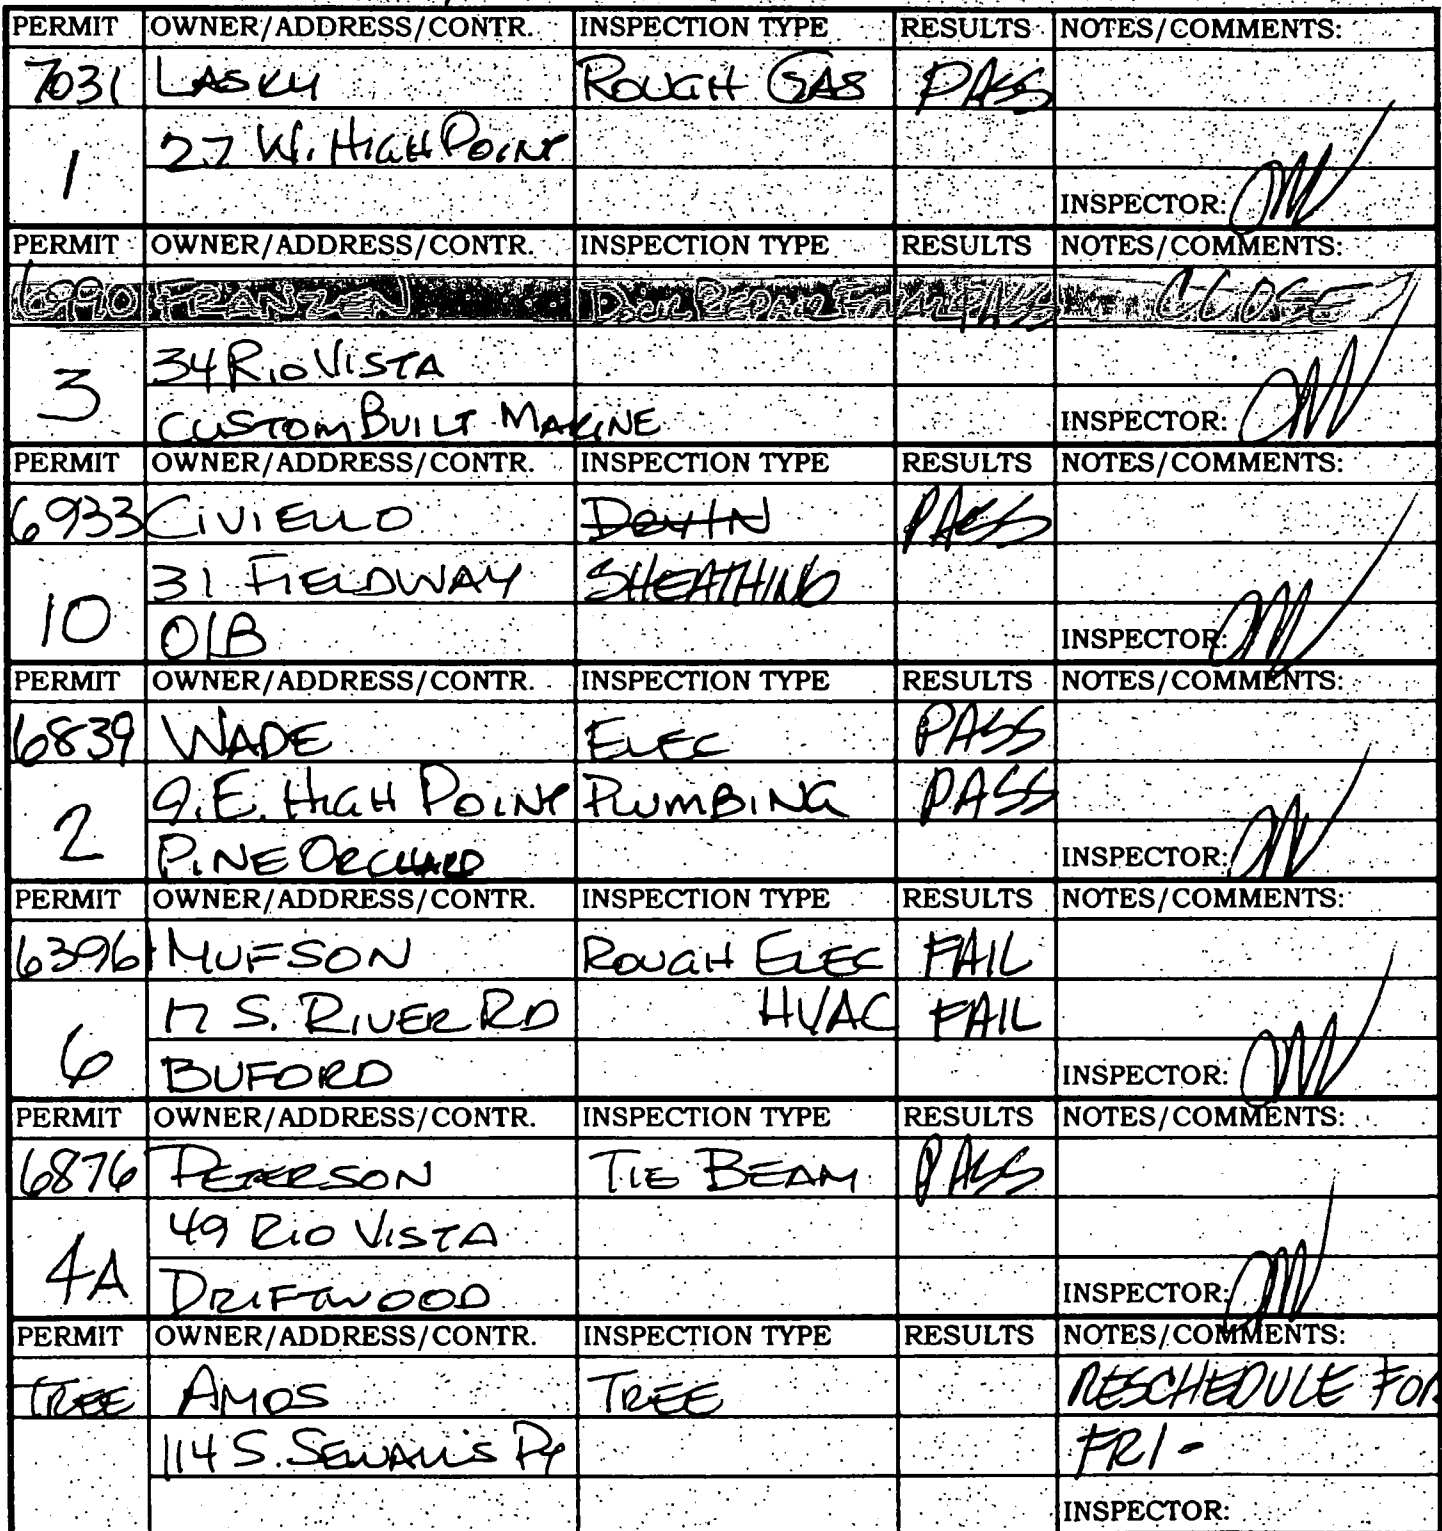 PERMIT OWNER/ADDRESS/CONTR. INSPECTION TYPE RESULTS NOTES/COMMENTS:
7031 LASKY ROUGH GAS PASS
1 27 W. HIGH POINT
INSPECTOR:
PERMIT OWNER/ADDRESS/CONTR. INSPECTION TYPE RESULTS NOTES/COMMENTS:
6990 FRANZEN DOCK REPAIR FINAL PASS CLOSE
3 34 RIO VISTA
CUSTOM BUILT MARINE INSPECTOR:
PERMIT OWNER/ADDRESS/CONTR. INSPECTION TYPE RESULTS NOTES/COMMENTS:
6933 CIVIELLO PASS
10 31 FIELDWAY SHEATHING
O/B INSPECTOR:
PERMIT OWNER/ADDRESS/CONTR. INSPECTION TYPE RESULTS NOTES/COMMENTS:
6839 WADE ELEC PASS
2 9 E. HIGH POINT PLUMBING PASS
PINE ORCHARD INSPECTOR:
PERMIT OWNER/ADDRESS/CONTR. INSPECTION TYPE RESULTS NOTES/COMMENTS:
6396 MUFSON ROUGH ELEC FAIL
6 17 S. RIVER RD HVAC FAIL
BUFORD INSPECTOR:
PERMIT OWNER/ADDRESS/CONTR. INSPECTION TYPE RESULTS NOTES/COMMENTS:
6876 PETERSON TIE BEAM PASS
4A 49 RIO VISTA
DRIFTWOOD INSPECTOR:
PERMIT OWNER/ADDRESS/CONTR. INSPECTION TYPE RESULTS NOTES/COMMENTS:
TREE AMOS TREE RESCHEDULE FOR
114 S. SEWALL'S PT FRI -
INSPECTOR: